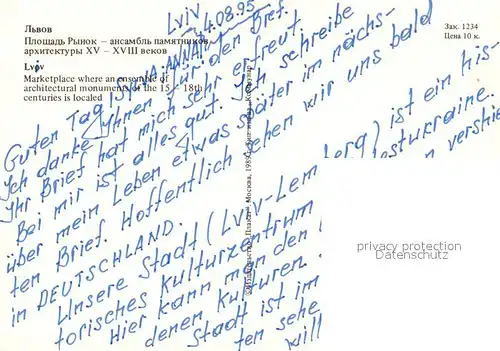 Львов
Площадь Рынок – ансамбль памятников
архитектуры XV – XVIII веков
Lvov
Marketplace where an ensemble of
architectural monuments of the 15 – 18th
centuries is located
Зак. 1234
Цена 10 к.
Lviv
4.08.95
Guten Tag, ANNA!
Ich danke Ihnen für den Brief.
Ihr Brief hat mich sehr erfreut.
Bei mir ist alles gut. Ich schreibe
über mein Leben etwas später im nächs-
ten Brief. Hoffentlich sehen wir uns bald
in DEUTSCHLAND.
Unsere Stadt (Lviv-Lemberg) ist ein his-
torisches Kulturzentrum Westukraine.
Hier kann man den verschie
denen Kulturen
Stadt ist im
ten sehe
will
Москва, 1989
privacy protection
Datenschutz